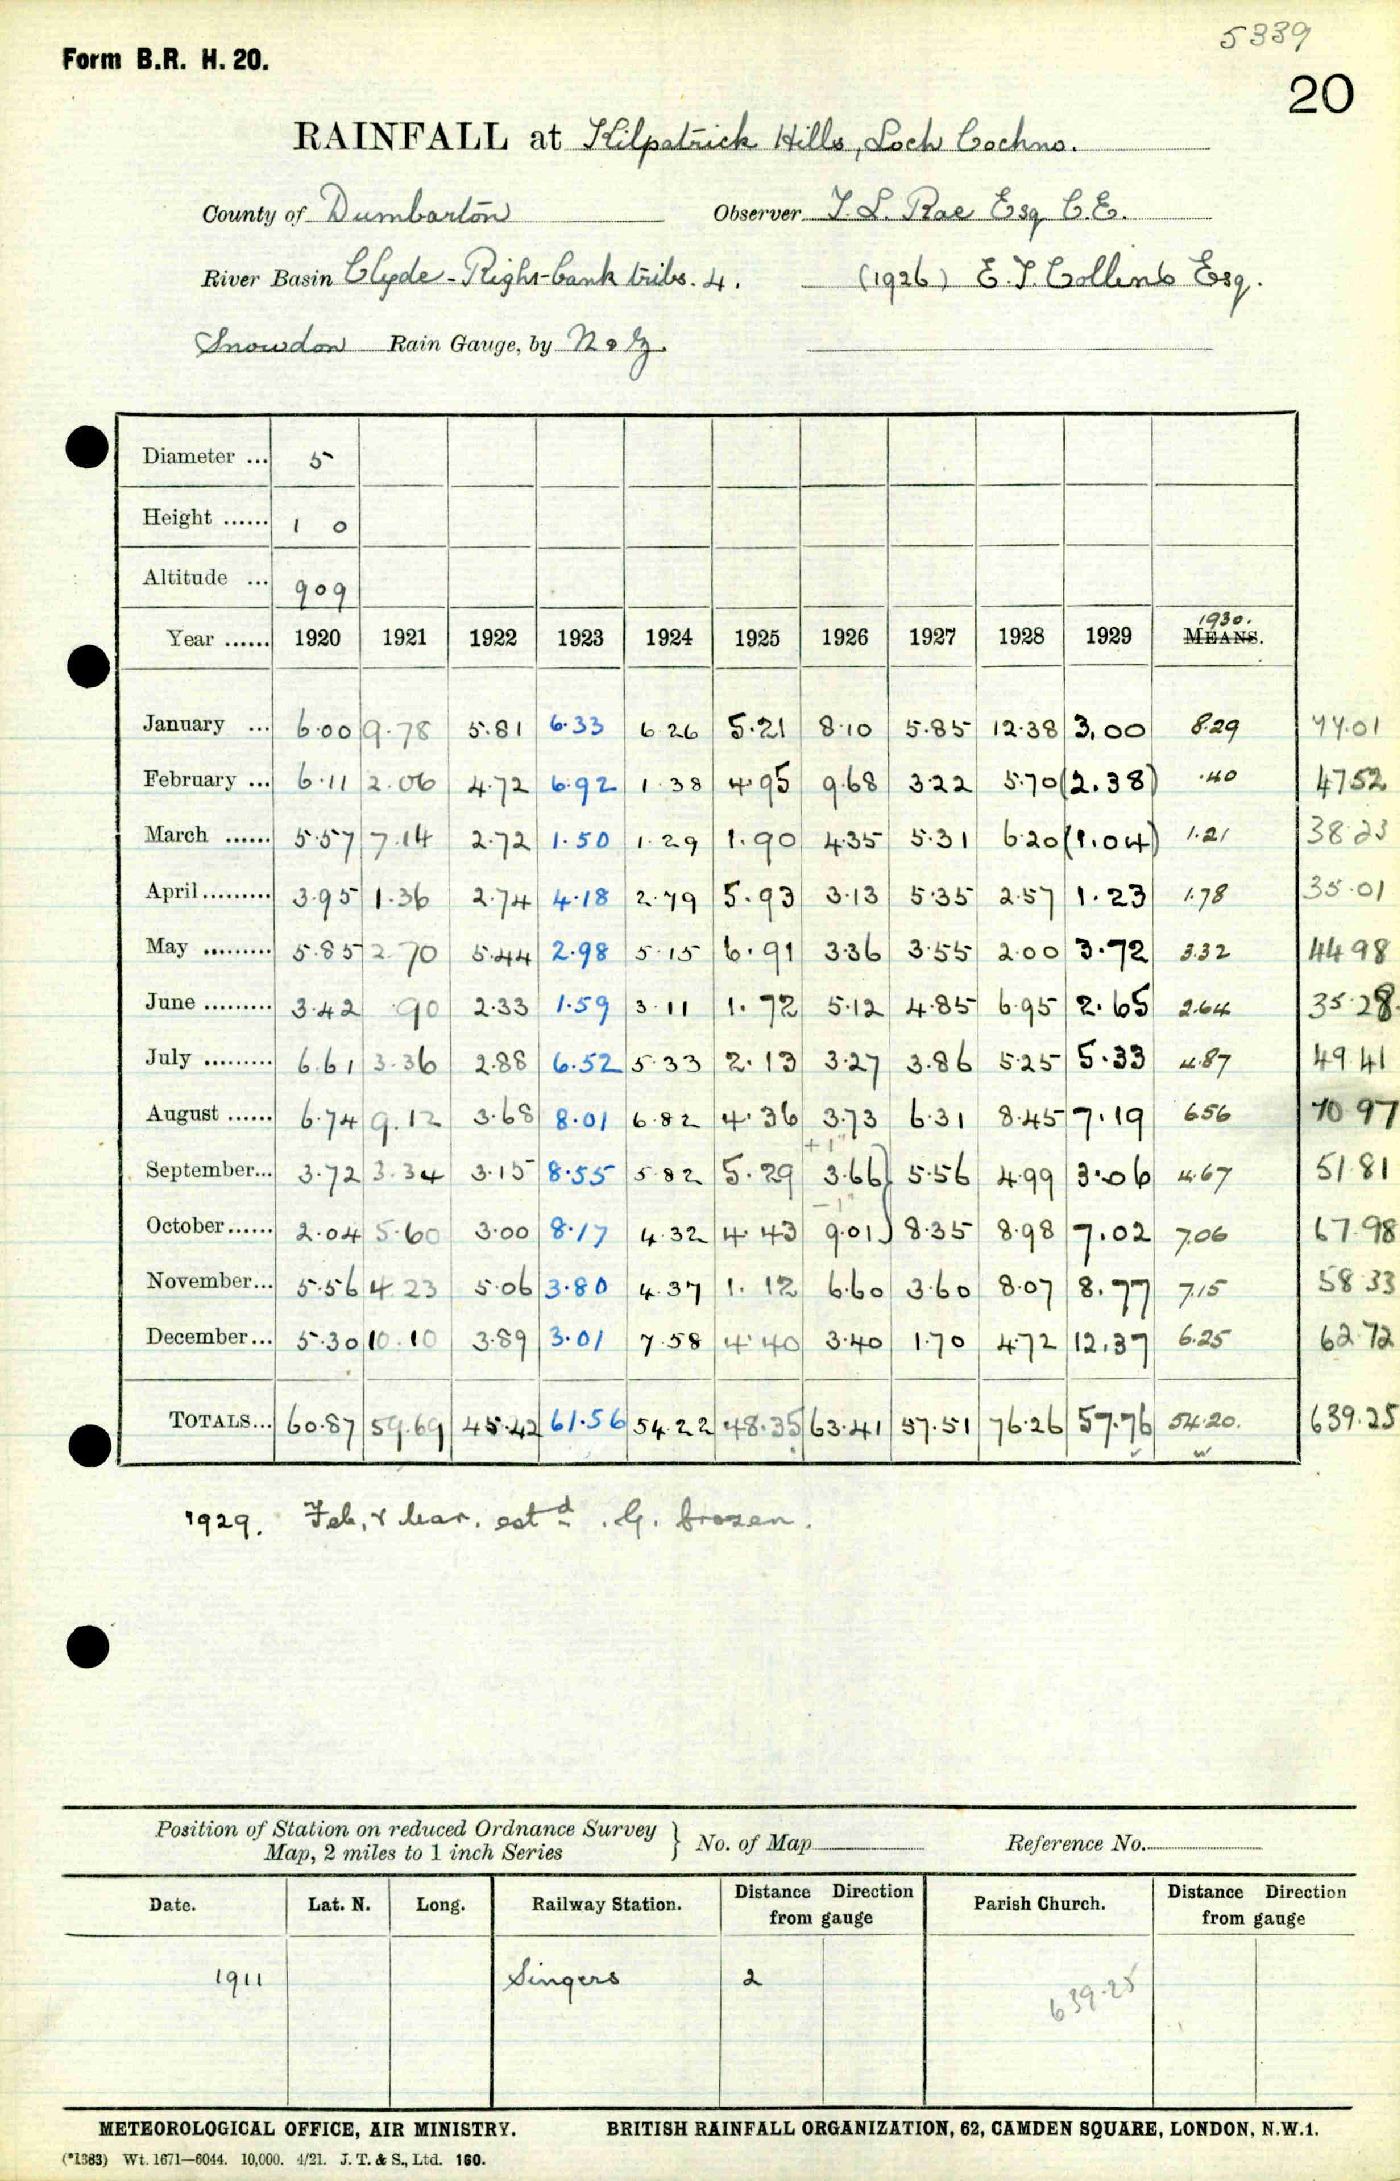 5339
Form B.R. H. 20.
20
RAINFALL at Kilpatrick Hills, Loch Cochno.
County of Dumbarton Observer T. L. Rae Esq C.E.
River Basin Clyde - Right-bank tribs. 4. (1926) E. T. Collins Esq.
Snowdon Rain Gauge, by N & Z.
Diameter ... 5
Height ...... 1 0
Altitude ... 909
1930.
Year ...... 1920 1921 1922 1923 1924 1925 1926 1927 1928 1929 MEANS.
January ... 6.00 9.78 5.81 6.33 6.26 5.21 8.10 5.85 12.38 3.00 8.29 77.01
February ... 6.11 2.06 4.72 6.92 1.38 4.95 9.68 3.22 5.70 (2.38) .40 47.52
March ...... 5.57 7.14 2.72 1.50 1.29 1.90 4.35 5.31 6.20 (1.04) 1.21 38.23
April......... 3.95 1.36 2.74 4.18 2.79 5.93 3.13 5.35 2.57 1.23 1.78 35.01
May ......... 5.85 2.70 5.44 2.98 5.15 6.91 3.36 3.55 2.00 3.72 3.32 44.98
June ......... 3.42 .90 2.33 1.59 3.11 1.72 5.12 4.85 6.95 2.65 2.64 35.28
July ......... 6.61 3.36 2.88 6.52 5.33 2.13 3.27 3.86 5.25 5.33 4.87 49.41
August ...... 6.74 9.12 3.68 8.01 6.82 4.36 3.73 6.31 8.45 7.19 6.56 70.97
+1"
September... 3.72 3.34 3.15 8.55 5.82 5.29 3.66} 5.56 4.99 3.06 4.67 51.81
-1"
October...... 2.04 5.60 3.00 8.17 4.32 4.43 9.01} 8.35 8.98 7.02 7.06 67.98
November... 5.56 4.23 5.06 3.80 4.37 1.12 6.60 3.60 8.07 8.77 7.15 58.33
December... 5.30 10.10 3.89 3.01 7.58 4.40 3.40 1.70 4.72 12.37 6.25 62.72
TOTALS... 60.87 59.69 45.42 61.56 54.22 48.35 63.41 57.51 76.26 57.76 54.20. 639.25
1929. Feb, & Mar. estd. G. frozen.
Position of Station on reduced Ordnance Survey
Map, 2 miles to 1 inch Series } No. of Map Reference No.
Date. Lat. N. Long. Railway Station. Distance Direction from gauge Parish Church. Distance Direction from gauge
1911 Singers 2
639.25
METEOROLOGICAL OFFICE, AIR MINISTRY. BRITISH RAINFALL ORGANIZATION, 62, CAMDEN SQUARE, LONDON, N.W.1.
(*1383) Wt. 1671—6044. 10,000. 4/21. J. T. & S., Ltd. 160.